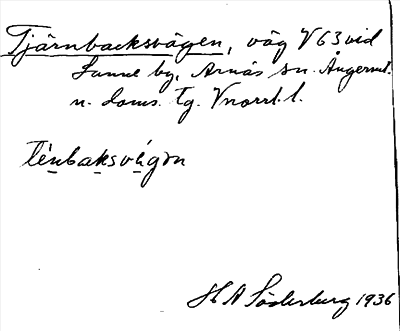 Tjärnbacksvägen, väg V 63 vid
Sunne by, Arnäs sn. Ångerml.
n. doms. Tg. Vnorrl. l.
tènbaksvágən
H A Söderburg 1936